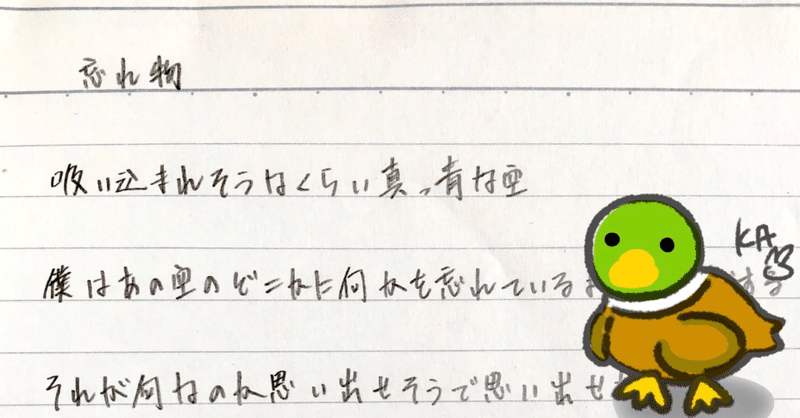 忘れ物
吸い込まれそうなくらい真っ青な空
僕はあの空のどこかに何かを忘れている する
それが何なのか思い出せそうで思い出せ
KA